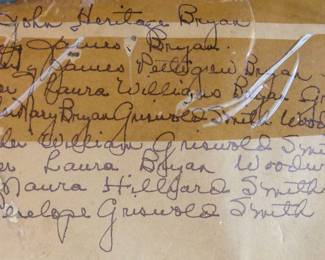 John Heritage Bryan
James Bryan
James Pettigrew Bryan
Laura Williams Bryan
Mary Bryan Griswold Smith Wood
William Griswold Smi
Laura Bryan Woodw
Maura Hilliard Smith
enelope Griswold Smith